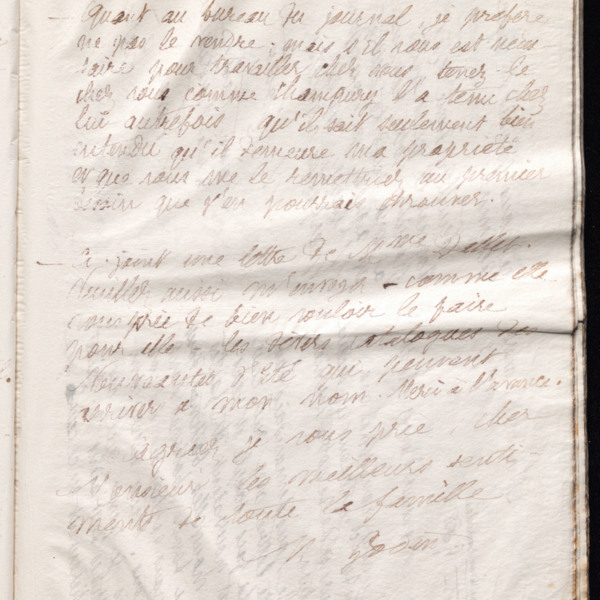 — Quant au bureau du journal, je préfère
ne pas le vendre; mais s'il vous est néces-
saire pour travailler chez vous, tenez le
chez vous comme Champury l'a tenu chez
lui autrefois qu'il soit seulement bien
entendu qu'il demeure ma propriété
et que vous me le remettriez au premier
besoin que j'en pourrais éprouver.
— Ci-joint une lettre de Mme
Veuillez aussi m'envoyer - comme elle
vous prie de bien vouloir le faire
pour elle - les divers catalogues de
Nouveautés d'été qui peuvent
arriver à mon nom. Merci à l'avance.
Agréez je vous prie, cher
Monsieur les meilleurs senti-
ments de toute la famille
Godin